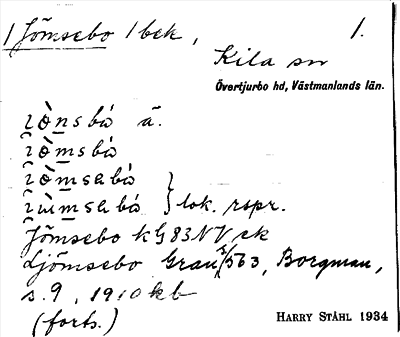 1 Jömsebo 1 bek, 1.
Kila sn
Övertjurbo hd, Västmanlands län.
ɩ̯ö̀nsbá ä.
ɩ̯ö̀msbá
ɩ̯ö̀msəbá
ɩ̯ùmsəbá } lok. rspr.
Jömsebo kG 83NV ek
Ljömsebo Grau 5/563, Borgman,
s. 9, 1910 kb
(forts.)
HARRY STÅHL 1934